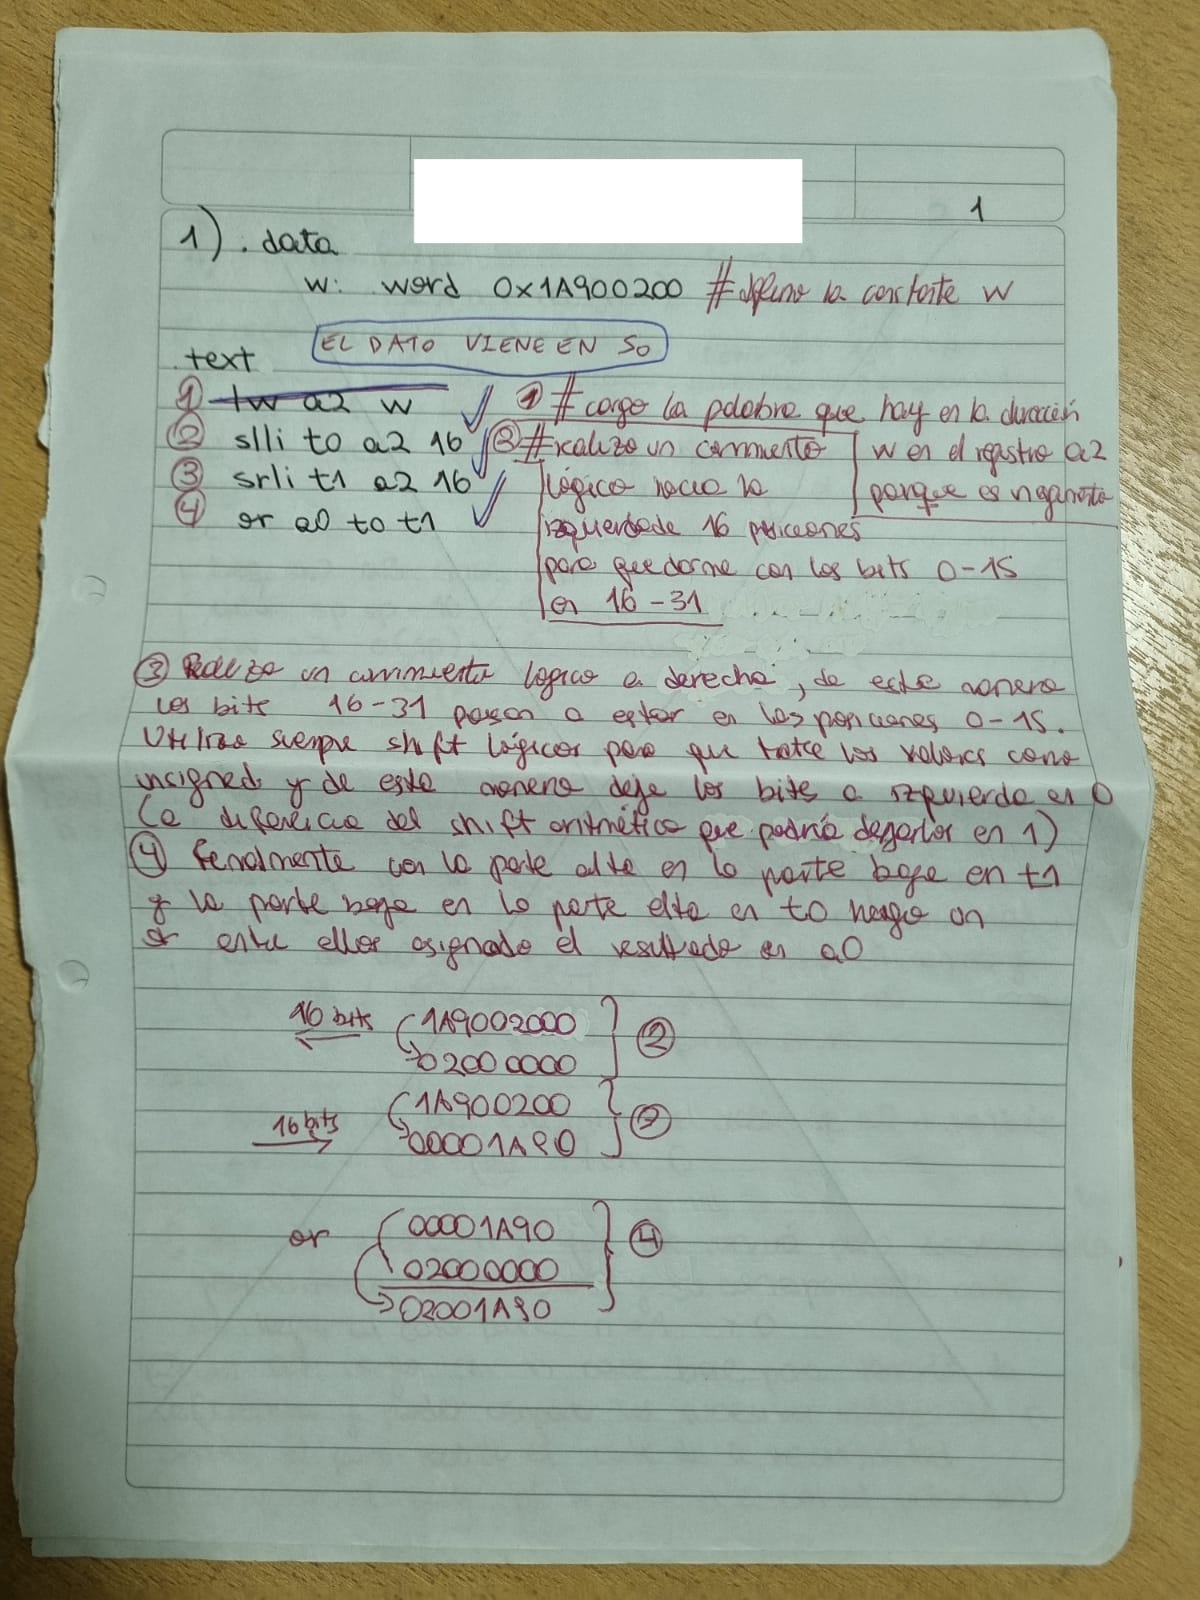 1
1) . data
w: word 0x1A900200 # defino la constante w
EL DATO VIENE EN S0
.text
① lw a2 w ① # cargo la palabra que hay en la dirección
② slli t0 a2 16 ② # realizo un corrimiento w en el registro a2
③ srli t1 a2 16 lógico hacia la porque es
④ or a0 t0 t1 izquierda de 16 posiciones
para quedarme con los bits 0-15
en 16-31
③ Realizo un corrimiento logico a derecha, de esta manera
los bits 16-31 pasan a estar en las posiciones 0-15.
Utilizo siempre shift lógicos para que trate los valores como
unsigned y de esta manera deje los bits a izquierda en 0
(a diferencia del shift aritmético que podría dejarlos en 1)
④ Finalmente con la parte alta en la parte baja en t1
y la parte baja en la parte alta en t0 hago un
or entre ellos asignado el resultado en a0
16 bits 1A9002000
02000000 ②
16 bits 1A900200
00001A90
or 00001A90 ④
02000000
02001A90